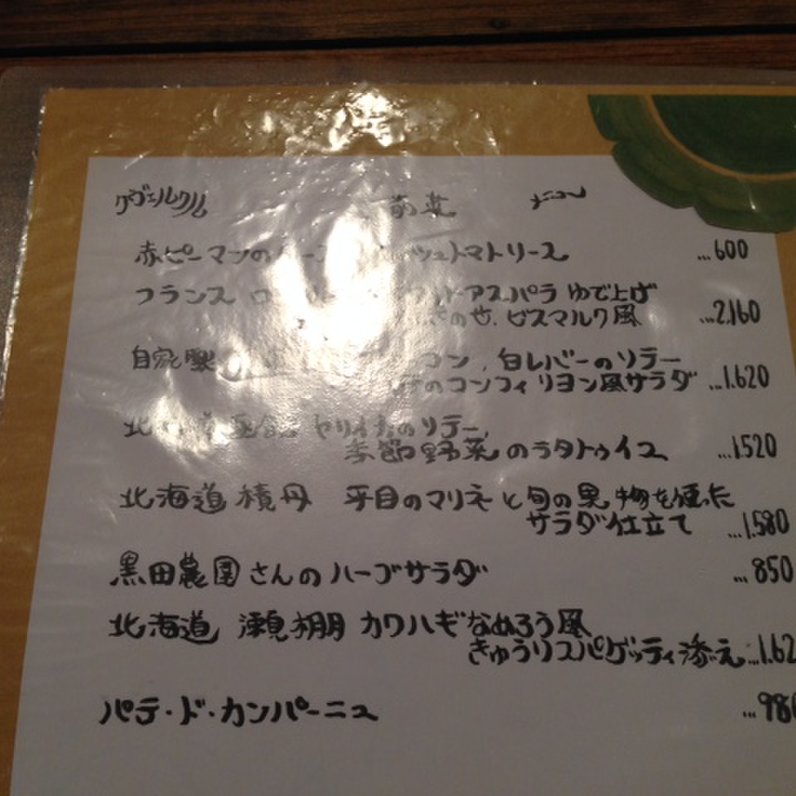 クヴェルクル 前菜 メニュー
赤ピーマンのムース トマトソース ...600
フランス ホワイトアスパラ ゆで上げ
ビスマルク風 ...2,160
自家製 ベーコン、白レバーのソテー
のコンフィ リヨン風サラダ ...1,620
北海道 ヤリイカのソテー、
季節野菜のラタトゥイユ ...1,520
北海道 積丹 平目のマリネと旬の果物を使った
サラダ仕立て ...1,580
黒田農園さんのハーブサラダ ...850
北海道 瀬棚 カワハギなめろう風
きゅうりスパゲッティ添え ...1,62
パテ・ド・カンパーニュ ...980